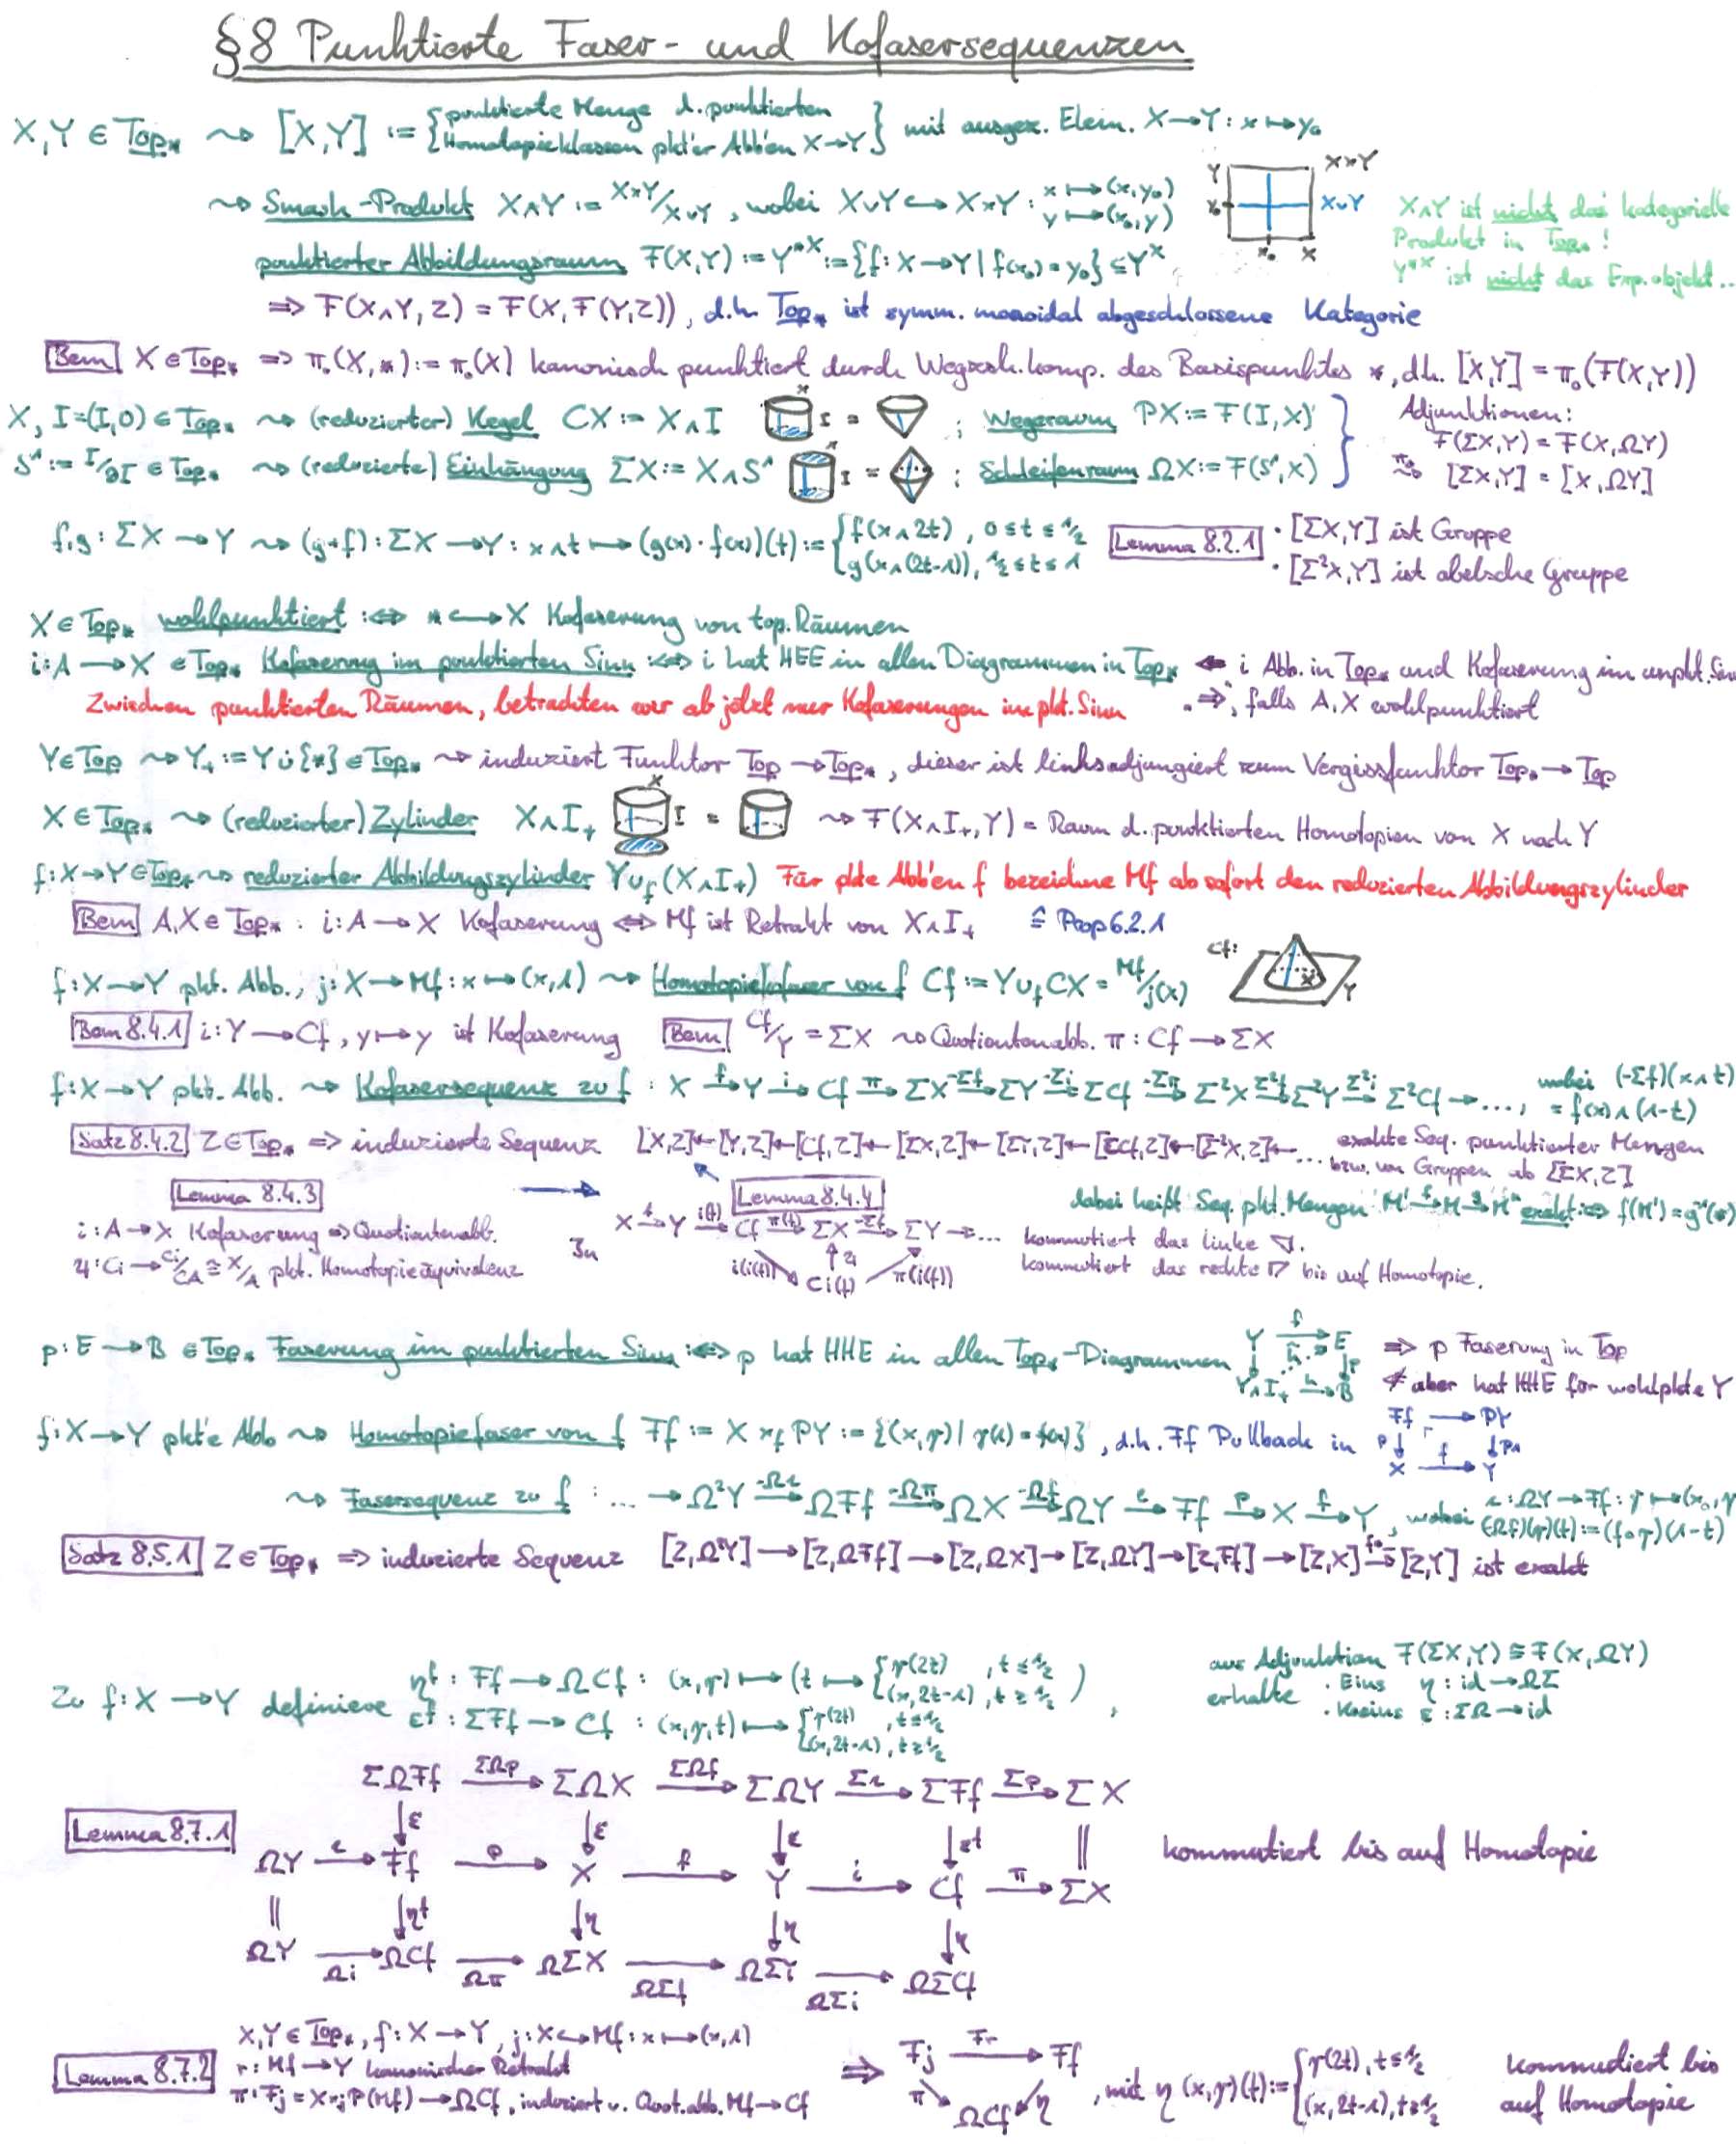 §8 Punktierte Faser- und Kofasersequenzen
X,Y ∈ Top* ⇝ [X,Y] := {punktierte Menge d. punktierten Homotopieklassen pkt'er Abb'en X→Y} mit ausgez. Elem. X→Y: x↦y₀
⇝ Smash-Produkt X∧Y := X×Y/X∨Y, wobei X∨Y ↪ X×Y: x↦(x,y₀) y↦(x₀,y)
Y X×Y
y₀ X∨Y
x₀ X
X∧Y ist nicht das kategorielle
Produkt in Top*!
Y*X ist nicht das Exp.objekt..
punktierter Abbildungsraum F(X,Y) := Y*X := {f: X→Y | f(x₀) = y₀} ⊆ Y^X
⇒ F(X∧Y, Z) = F(X, F(Y,Z)), d.h. Top* ist symm. monoidal abgeschlossene Kategorie
Bem X ∈ Top* ⇒ π₀(X,*) := π₀(X) kanonisch punktiert durch Wegzsh.komp. des Basispunktes *, d.h. [X,Y] = π₀(F(X,Y))
X, I=(I,0) ∈ Top* ⇝ (reduzierter) Kegel CX := X∧I X I = ; Wegeraum PX := F(I,X)
S¹ := I/∂I ∈ Top* ⇝ (reduzierte) Einhängung ΣX := X∧S¹ X I = ; Schleifenraum ΩX := F(S¹,X)
Adjunktionen:
F(ΣX,Y) = F(X,ΩY)
π₀⇝ [ΣX,Y] = [X,ΩY]
f,g: ΣX→Y ⇝ (g+f): ΣX→Y: x∧t ↦ (g(x)·f(x))(t) := {f(x∧2t), 0≤t≤½ g(x∧(2t-1)), ½≤t≤1
Lemma 8.2.1 · [ΣX,Y] ist Gruppe
· [Σ²X,Y] ist abelsche Gruppe
X ∈ Top* wohlpunktiert :⇔ * ↪ X Kofaserung von top. Räumen
i: A→X ∈ Top* Kofaserung im punktierten Sinn :⇔ i hat HEE in allen Diagrammen in Top* ⇐ i Abb. in Top* und Kofaserung im unpkt. Sinn
Zwischen punktierten Räumen, betrachten wir ab jetzt nur Kofaserungen im pkt. Sinn ⇒, falls A,X wohlpunktiert
Y∈Top ⇝ Y₊ := Y ∪̇ {*} ∈ Top* ⇝ induziert Funktor Top→Top*, dieser ist linksadjungiert zum Vergissfunktor Top*→Top
X ∈ Top* ⇝ (reduzierter) Zylinder X∧I₊ X I = ⇝ F(X∧I₊,Y) = Raum d. punktierten Homotopien von X nach Y
f: X→Y ∈ Top* ⇝ reduzierter Abbildungszylinder Y∪f(X∧I₊) Für pkte Abb'en f bezeichne Mf ab sofort den reduzierten Abbildungszylinder
Bem A,X ∈ Top*: i: A→X Kofaserung ⇔ Mf ist Retrakt von X∧I₊ ≙ Prop 6.2.1
f: X→Y pkt. Abb., j: X→Mf: x↦(x,1) ⇝ Homotopiekofaser von f Cf := Y∪f CX = Mf/j(X)
Cf: X Y
Bem 8.4.1 i: Y→Cf, y↦y ist Kofaserung Bem Cf/Y = ΣX ⇝ Quotientenabb. π: Cf→ΣX
f: X→Y pkt. Abb. ⇝ Kofasersequenz zu f: X –f→ Y –i→ Cf –π→ ΣX –-Σf→ ΣY –-Σi→ ΣCf –-Σπ→ Σ²X –Σ²f→ Σ²Y –Σ²i→ Σ²Cf →..., wobei (-Σf)(x∧t) = f(x)∧(1-t)
Satz 8.4.2 Z∈Top* ⇒ induzierte Sequenz [X,Z]←[Y,Z]←[Cf,Z]←[ΣX,Z]←[ΣY,Z]←[ΣCf,Z]←[Σ²X,Z]←... exakte Seq. punktierter Mengen
bzw. von Gruppen ab [ΣX,Z]
dabei heißt Seq. pkt. Mengen M' –f→ M –g→ M'' exakt :⇔ f(M') = g⁻¹(*)
Lemma 8.4.3
i: A→X Kofaserung ⇒ Quotientenabb.
ψ: Ci → Ci/CA ≅ X/A pkt. Homotopieäquivalenz
Lemma 8.4.4
In X –f→ Y –i(f)→ Cf –π(f)→ ΣX –-Σf→ ΣY →...
i(i(f)) Ci(f) ↑ψ π(i(f))
kommutiert das linke ▽.
kommutiert das rechte ▽ bis auf Homotopie.
p: E→B ∈ Top* Faserung im punktierten Sinn :⇔ p hat HHE in allen Top*-Diagrammen Y –f→ E ⇒ p Faserung in Top
Y∧I₊ –h→ B ⇍ aber hat HHE für wohlpkte Y
f: X→Y pkt'e Abb ⇝ Homotopiefaser von f Ff := X ×f PY := {(x,γ) | γ(1) = f(x)}, d.h. Ff Pullback in Ff → PY
p↓ ↓p₁
X –f→ Y
⇝ Fasersequenz zu f: ... → Ω²Y –-Ωι→ ΩFf –-Ωπ→ ΩX –-Ωf→ ΩY –ι→ Ff –p→ X –f→ Y, wobei ι: ΩY→Ff: γ↦(x₀,γ
(-Ωf)(γ)(t) := (f∘γ)(1-t)
Satz 8.5.1 Z∈Top* ⇒ induzierte Sequenz [Z,Ω²Y]→[Z,ΩFf]→[Z,ΩX]→[Z,ΩY]→[Z,Ff]→[Z,X] –f∘-→ [Z,Y] ist exakt
Zu f: X→Y definiere η^f: Ff→ΩCf: (x,γ) ↦ (t ↦ {γ(2t), t≤½ (x,2t-1), t≥½),
ε^f: ΣFf→Cf: (x,γ,t) ↦ {γ(2t), t≤½ (x,2t-1), t≥½
aus Adjunktion F(ΣX,Y) ≅ F(X,ΩY)
erhalte · Eins η: id→ΩΣ
· Koeins ε: ΣΩ→id
ΣΩFf –ΣΩp→ ΣΩX –ΣΩf→ ΣΩY –Σι→ ΣFf –Σp→ ΣX
↓ε ↓ε ↓ε ↓ε^f ‖
Lemma 8.7.1 ΩY –ι→ Ff –p→ X –f→ Y –i→ Cf –π→ ΣX kommutiert bis auf Homotopie
‖ ↓η^f ↓η ↓η ↓η
ΩY –Ωi→ ΩCf –Ωπ→ ΩΣX –ΩΣf→ ΩΣY –ΩΣi→ ΩΣCf
Lemma 8.7.2 X,Y ∈ Top*, f: X→Y, j: X↪Mf: x↦(x,1)
r: Mf→Y kanonischer Retrakt
π: Fj = X×j P(Mf)→ΩCf, induziert v. Quot.abb. Mf→Cf
⇒ Fj –Fr→ Ff
π↘ ΩCf ↙η
, mit η(x,γ)(t) := {γ(2t), t≤½ (x,2t-1), t≥½
kommutiert bis
auf Homotopie